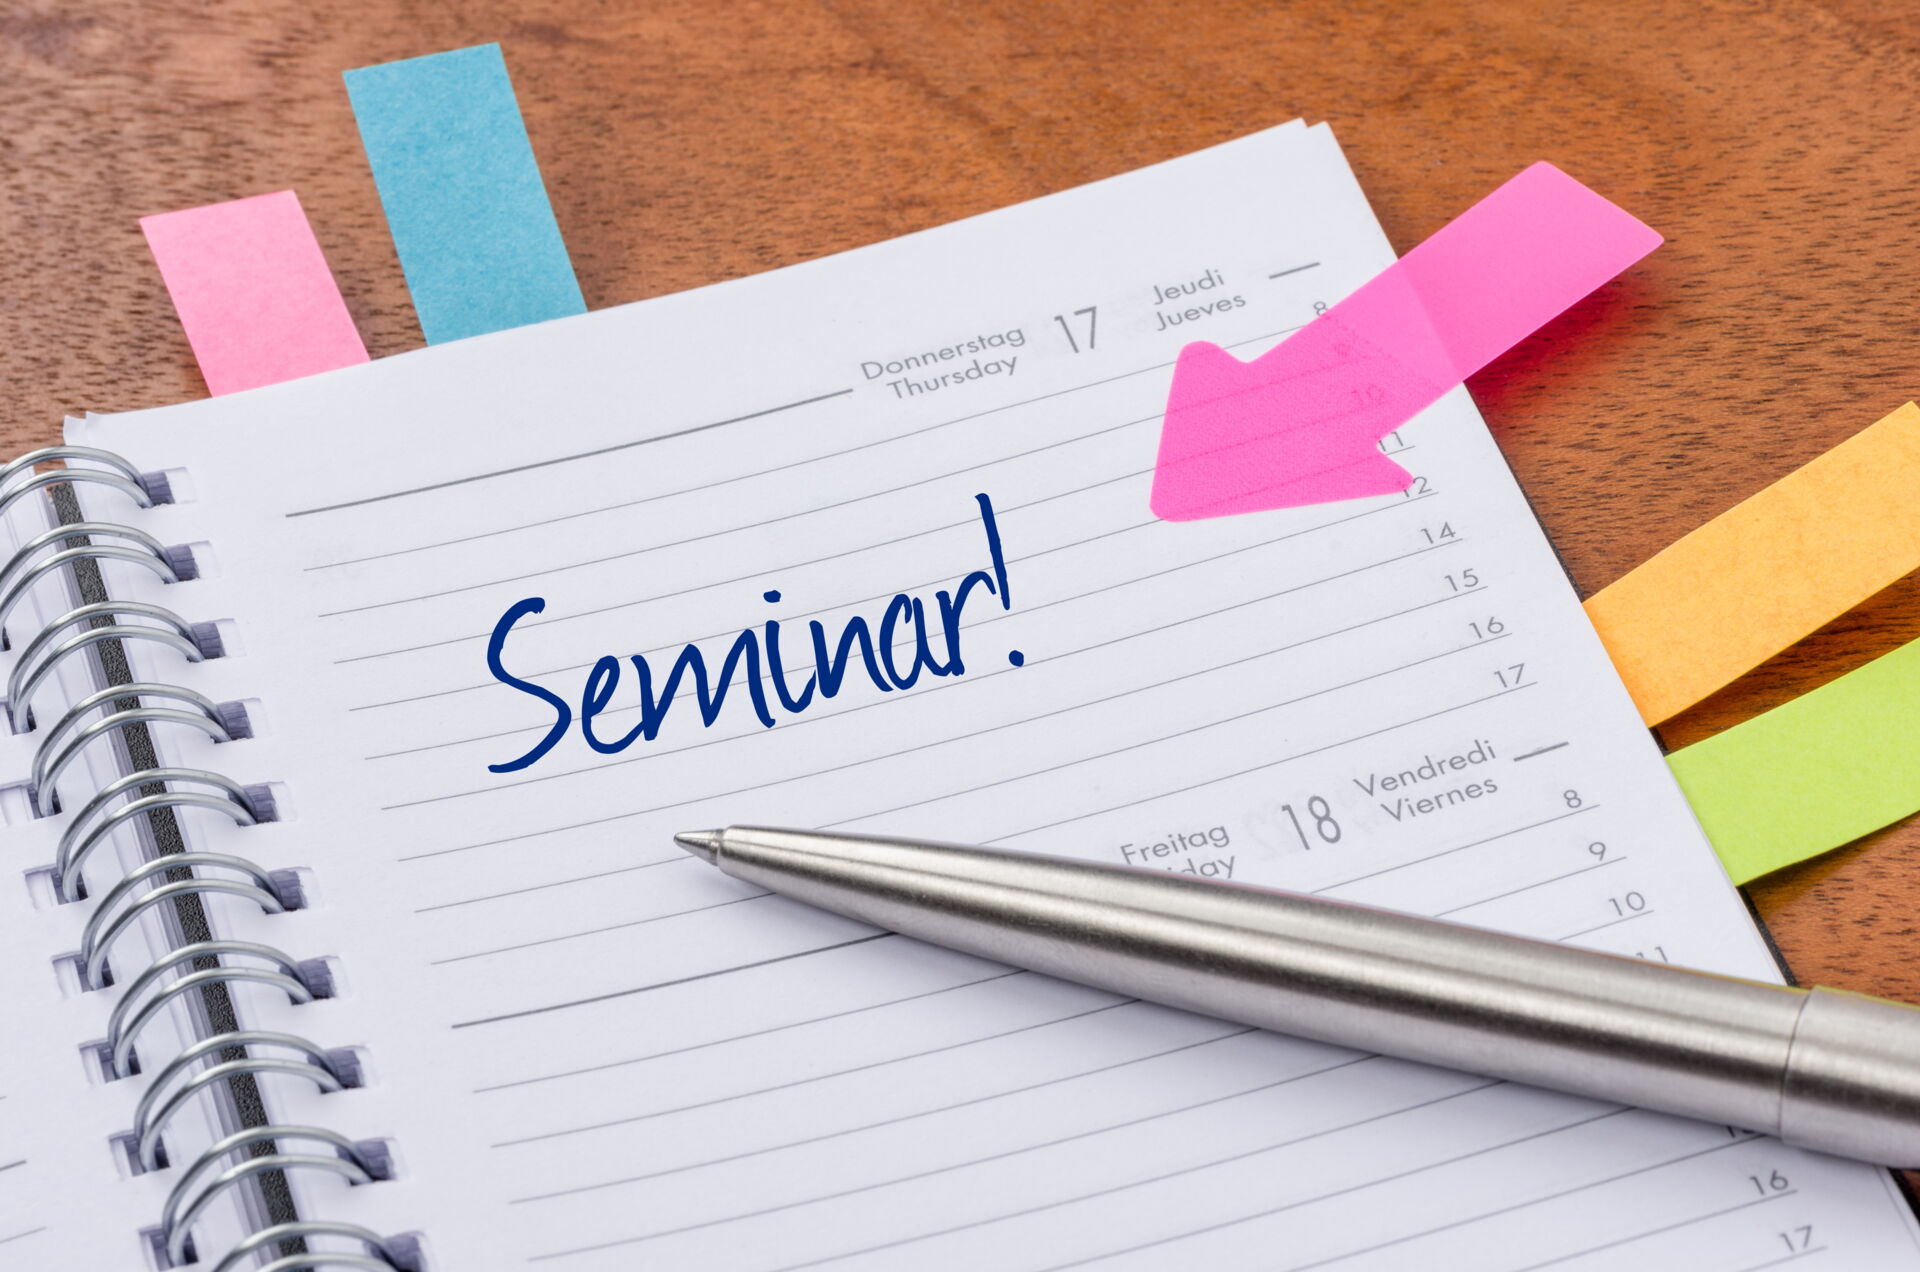 Donnerstag 17 Jeudi
Thursday Jueves
8
10
11
12
Seminar!
14
15
16
17
Freitag 18 Vendredi
Viernes
8
9
10
11
16
17